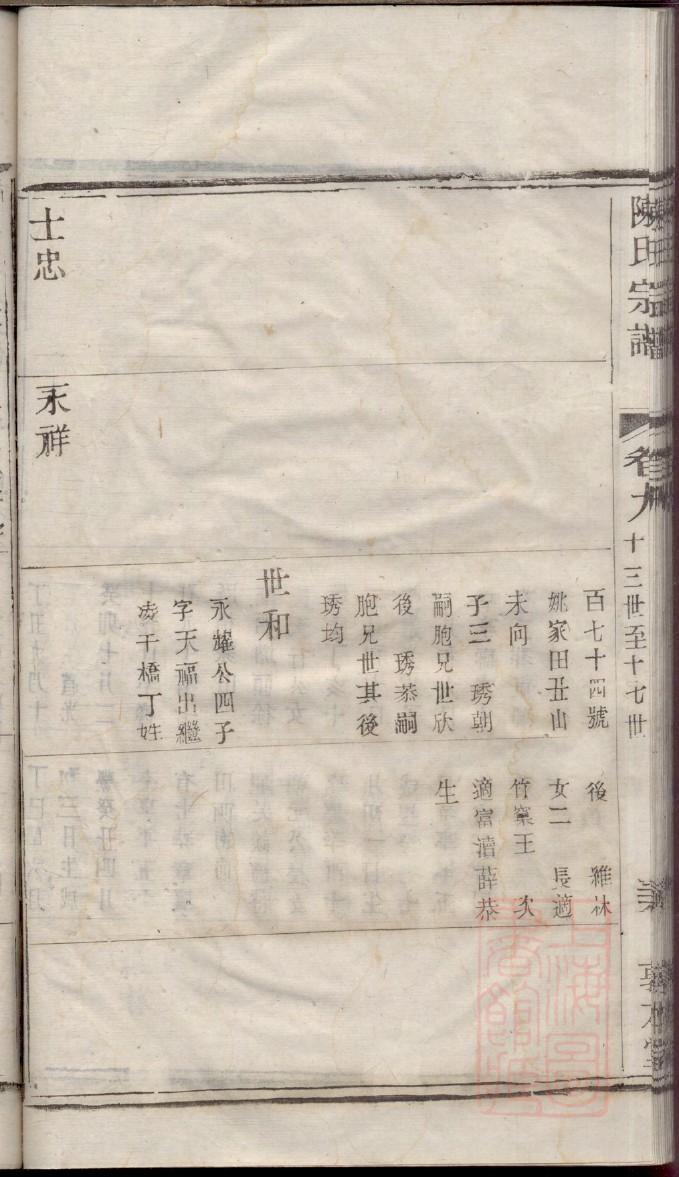 陳氏宗譜
卷九
十三世至十七世
百七十四號
姚家田丑山
未向
子三 琇朝
嗣胞兄世欣
後 琇恭嗣
胞兄世其後
琇均
世和
永耀公四子
字天福出繼
干橋丁姓
後 雅林
女二 長適
竹窠王 次
適富瀆薛恭
生
士忠
永祥
上海圖書館藏